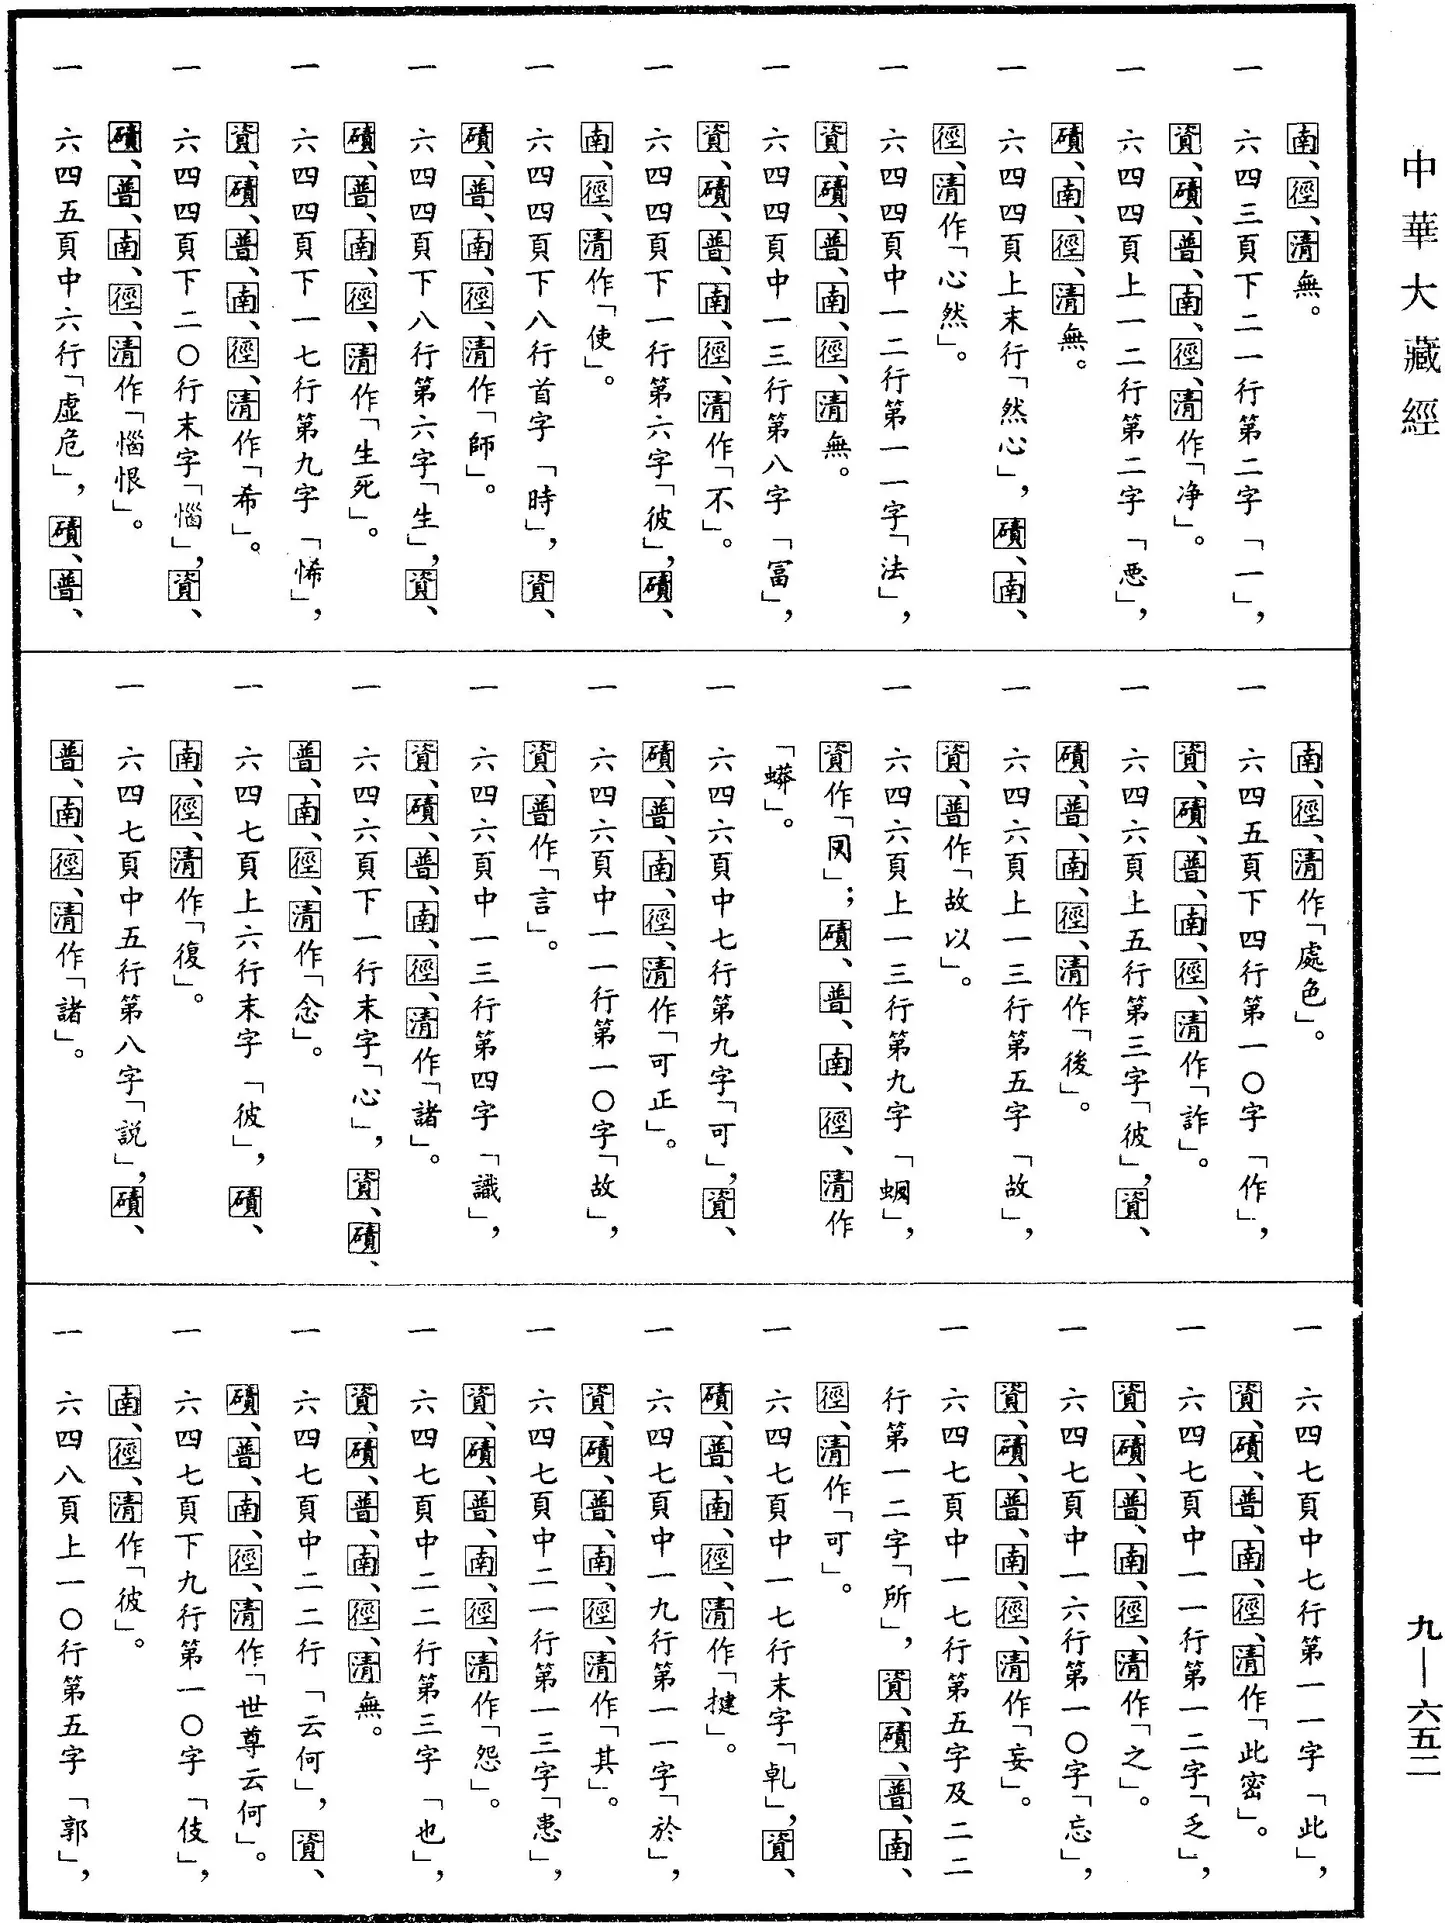 中華大藏經
南、徑、清無。
一　六四三頁下二一行第二字「一」，
資、磧、普、南、徑、清作「净」。
一　六四四頁上一二行第二字「恶」，
磧、南、徑、清無。
一　六四四頁上末行「然心」，磧、南、
徑、清作「心然」。
一　六四四頁中一二行第一一字「法」，
資、磧、普、南、徑、清無。
一　六四四頁中一三行第八字「冨」，
資、磧、普、南、徑、清作「不」。
一　六四四頁下一行第六字「彼」，磧、
南、徑、清作「使」。
一　六四四頁下八行首字「時」，資、
磧、普、南、徑、清作「師」。
一　六四四頁下八行第六字「生」，資、
磧、普、南、徑、清作「生死」。
一　六四四頁下一七行第九字「悕」，
資、磧、普、南、徑、清作「希」。
一　六四四頁下二〇行末字「惱」，資、
磧、普、南、徑、清作「惱恨」。
一　六四五頁中六行「虛危」，磧、普、
南、徑、清作「處色」。
一　六四五頁下四行第一〇字「作」，
資、磧、普、南、徑、清作「詐」。
一　六四六頁上五行第三字「彼」，資、
磧、普、南、徑、清作「後」。
一　六四六頁上一三行第五字「故」，
資、普作「故以」。
一　六四六頁上一三行第九字「蜠」，
資作「罔」；磧、普、南、徑、清作
「蟒」。
一　六四六頁中七行第九字「可」，資、
磧、普、南、徑、清作「可正」。
一　六四六頁中一一行第一〇字「故」，
資、普作「言」。
一　六四六頁中一三行第四字「識」，
資、磧、普、南、徑、清作「諸」。
一　六四六頁下一行末字「心」，資、磧、
普、南、徑、清作「念」。
一　六四七頁上六行末字「彼」，磧、
南、徑、清作「復」。
一　六四七頁中五行第八字「説」，磧、
普、南、徑、清作「諸」。
一　六四七頁中七行第一一字「此」，
資、磧、普、南、徑、清作「此密」。
一　六四七頁中一一行第一二字「乏」，
資、磧、普、南、徑、清作「之」。
一　六四七頁中一六行第一〇字「忘」，
資、磧、普、南、徑、清作「妄」。
一　六四七頁中一七行第五字及二二
行第一二字「所」，資、磧、普、南、
徑、清作「可」。
一　六四七頁中一七行末字「乹」，資、
磧、普、南、徑、清作「揵」。
一　六四七頁中一九行第一一字「於」，
資、磧、普、南、徑、清作「其」。
一　六四七頁中二一行第一三字「患」，
資、磧、普、南、徑、清作「怨」。
一　六四七頁中二二行第三字「也」，
資、磧、普、南、徑、清無。
一　六四七頁中二二行「云何」，資、
磧、普、南、徑、清作「世尊云何」。
一　六四七頁下九行第一〇字「伎」，
南、徑、清作「彼」。
一　六四八頁上一〇行第五字「郭」，
九—六五二